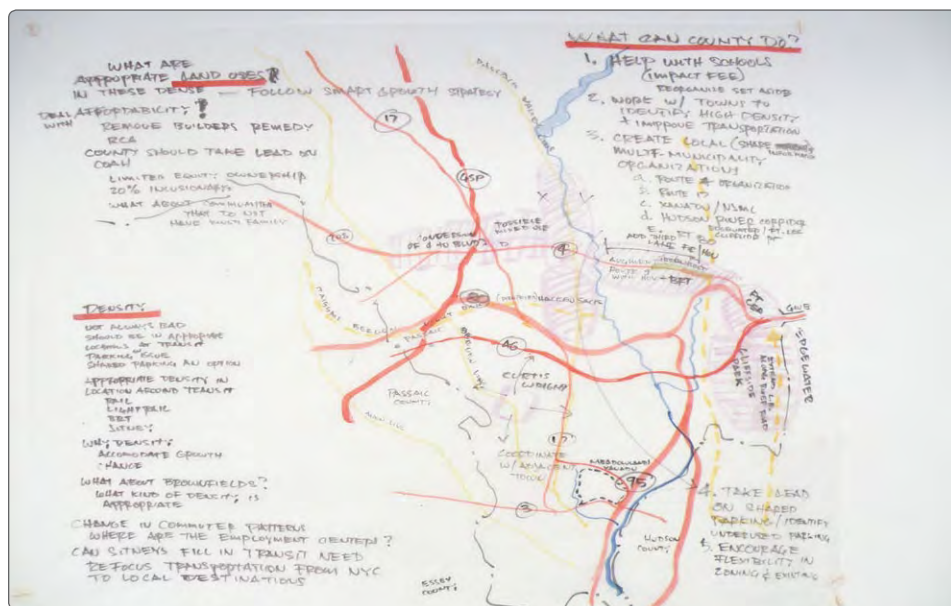 WHAT ARE
APPROPRIATE LAND USES?
IN THESE DENSE — FOLLOW SMART GROWTH STRATEGY
DEAL WITH AFFORDABILITY?
REMOVE BUILDERS REMEDY
RCA
COUNTY SHOULD TAKE LEAD ON
COAH
LIMITED EQUITY OWNERSHIP
20% INCLUSIONARY
WHAT ABOUT COMMUNITIES
THAT DO NOT
HAVE MULTI FAMILY
DENSITY
NOT ALWAYS BAD
SHOULD BE IN APPROPIATE
LOCATIONS AT TRANSIT
PARKING
SHARED PARKING AN OPTION
APPROPRIATE DENSITY IN
LOCATION AROUND TRANSIT
RAIL
LIGHT RAIL
BRT
JITNEY
WHY DENSITY
ACCOMODATE GROWTH
CHANGE
WHAT ABOUT BROWNFIELDS?
WHAT KIND OF DENSITY IS
APPROPRIATE
CHANGE IN COMMUTER PATTERNS
WHERE ARE THE EMPLOYMENT CENTERS?
CAN JITNEYS FILL IN TRANSIT NEED
REFOCUS TRANSPORTATION FROM NYC
TO LOCAL DESTINATIONS
WHAT CAN COUNTY DO?
1. HELP WITH SCHOOLS
(IMPACT FEE)
REORGANIZE SET ASIDE
2. WORK W/ TOWNS TO
IDENTIFY HIGH DENSITY
+ IMPROVE TRANSPORTATION
3. CREATE LOCAL (SHARE
MULTI-MUNICIPALITY
ORGANIZATIONS
a. ROUTE 4 ORGANIZATION
b. ROUTE 17
c. XANADU/NJMC
d. HUDSON RIVER CORRIDOR
EDGEWATER/FT. LEE
e.
ADD THIRD
LANE
ROUTE 4
4. TAKE LEAD
ON SHARED
PARKING/IDENTIFY
UNDERUSED PARKING
5. ENCOURAGE
FLEXIBILITY IN
ZONING & EXISTING
17
GSP
POSSIBLE
MIXED USE
4
80
46
PASSAIC
COUNTY
CURTIS
WRIGHT
17
COORDINATE
W/ ADJACENT
TOWN
MEADOWLANDS
XANADU
95
3
HUDSON
COUNTY
ESSEX
COUNTY
FT
LEE
GWB
EDGEWATER
CLIFFSIDE
PARK